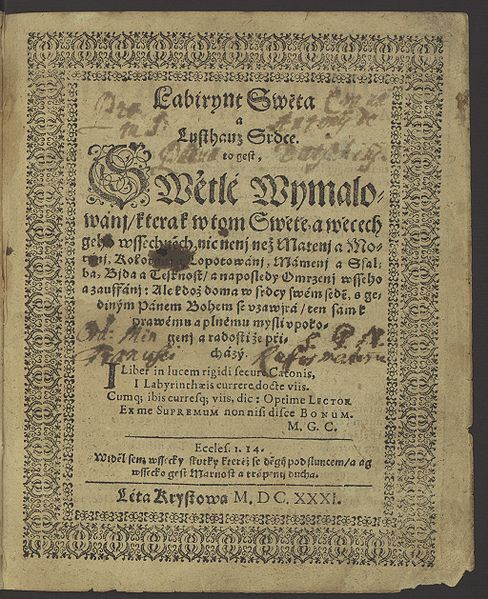 Labirynt Swěta
a
Lusthauz Srdce.
to gest,
Swětlé Wymalo-
wánj / kterak w tom Swětě a wěcech
geho wssechněch, nic nenj než Matenj a Mo-
tanj, Kolotánj a Lopotowánj, Mámenj a Ssal-
ba, Bjda a Tesknost / a naposledy Omrzenj wsseho
a zauffánj: Ale kdož doma w srdcy swém sedě, s ge-
diným Pánem Bohem se vzawjrá / ten sám k
prawému a plnému mysli vpoko-
genj a radosti že při-
cházý.
I Liber in lucem rigidi secure Catonis,
I Labyrinthæis currere docte viis.
Cumq; ibis curresq; viis, dic: Optime LECTOR
Ex me SUPREMUM non nisi disce BONUM.
M. G. C.
Eccles. 1. 14.
Widěl sem wssecky skutky kteréž se děgj pod sluncem / a ag
wssecko gest Marnost a trápenj ducha.
Léta Krystowa M. DC. XXXI.